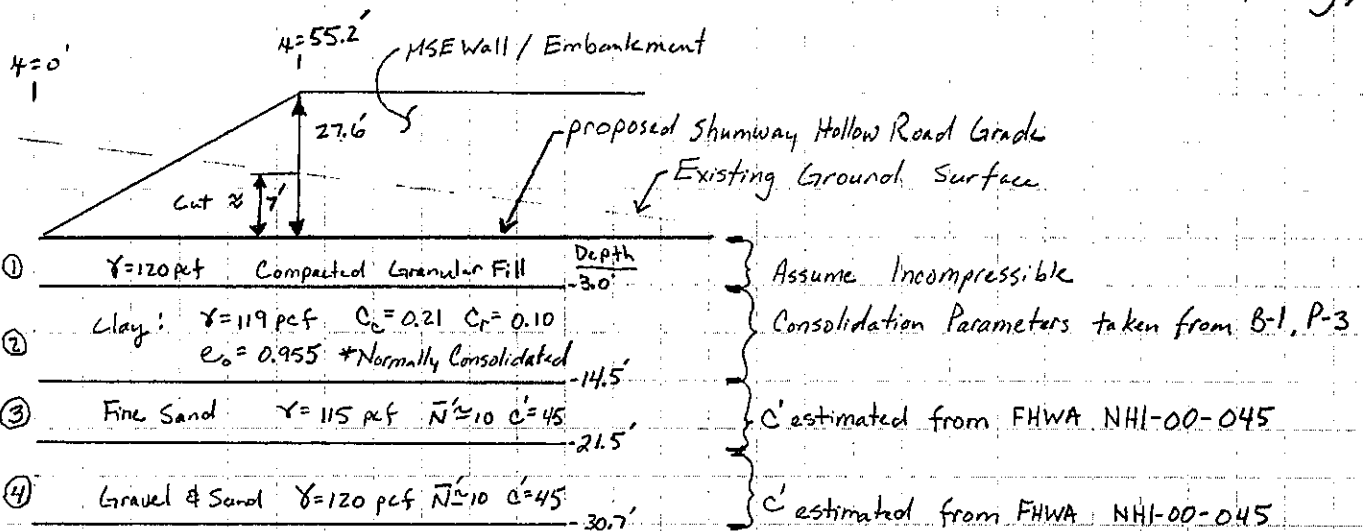 x=55.2'
x=0'
MSE Wall / Embankment
27.6'
proposed Shumway Hollow Road Grade
Existing Ground Surface
Cut ≈ 7'
① γ=120 pcf Compacted Granular Fill Depth
-3.0'
Assume Incompressible
② Clay: γ=119 pcf Cc=0.21 Cr=0.10
e₀=0.955 *Normally Consolidated
-14.5'
Consolidation Parameters taken from B-1, P-3
③ Fine Sand γ=115 pcf N̄'≈10 C'=45
-21.5'
C' estimated from FHWA NHI-00-045
④ Gravel & Sand γ=120 pcf N̄'≈10 C'=45
-30.7'
C' estimated from FHWA NHI-00-045